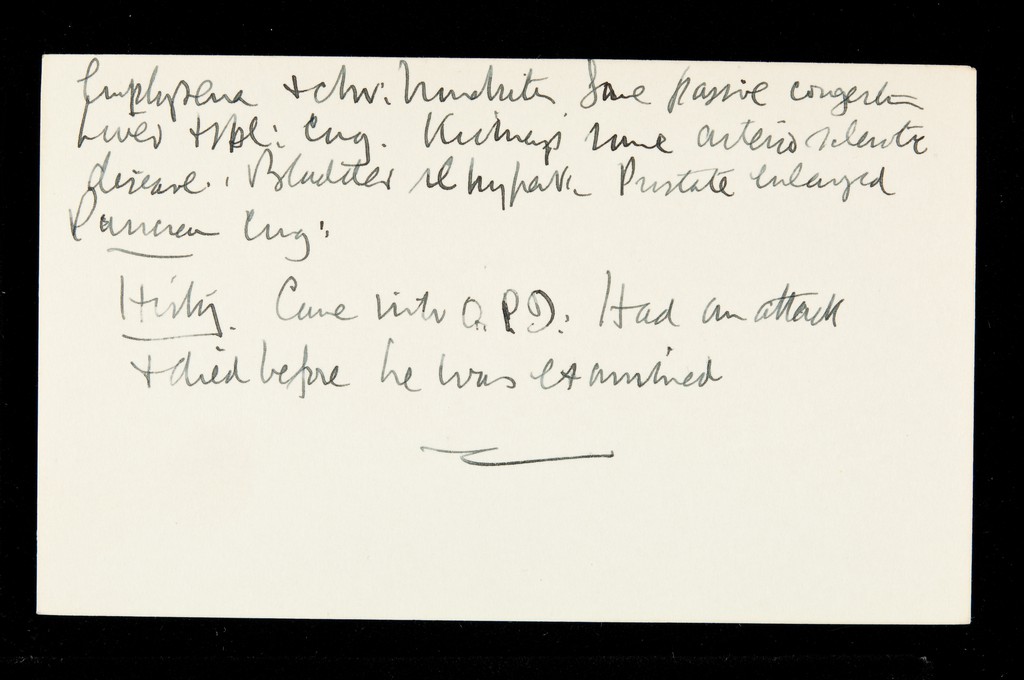 Emphysema + chr: bronchitis Some passive congestion
Liver + spl: Cng. Kidneys some arterio sclerotic
disease. Bladder sl hypert. Prostate enlarged
Pancreas Cng:
History. Came into O.P.D: Had an attack
+ died before he was examined